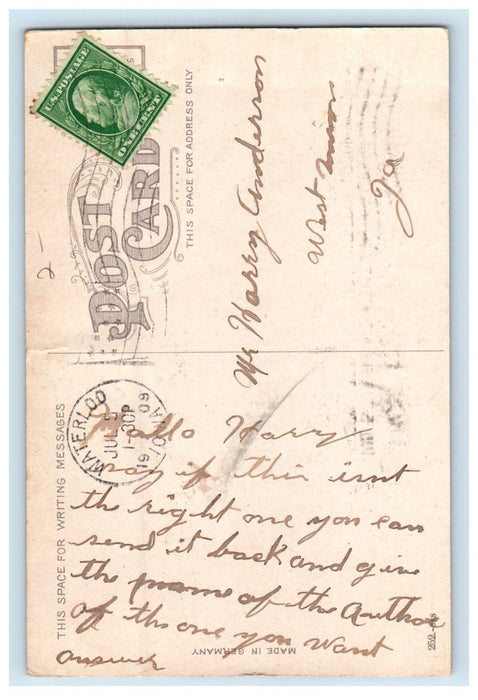 U.S. POSTAGE
ONE CENT
POST CARD
THIS SPACE FOR ADDRESS ONLY
2-
Mr Harry Anderson
West Union
Ia
WATERLOO
JUL 5
1-30P
1909
IOWA
THIS SPACE FOR WRITING MESSAGES
Hallo Harry
say if this isnt
the right one you can
send it back and give
the name of the Author
of the one you want
answer
MADE IN GERMANY